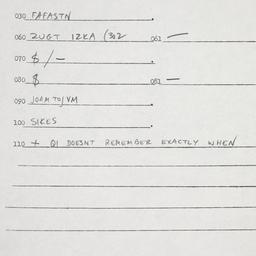 030 FAFASTN
060 2UGT 12KA (302 061 —
070 $/-
080 $ 081 —
090 JOAM TO/VM
100 SIKES
110 + QI DOESNT REMEMBER EXACTLY WHEN